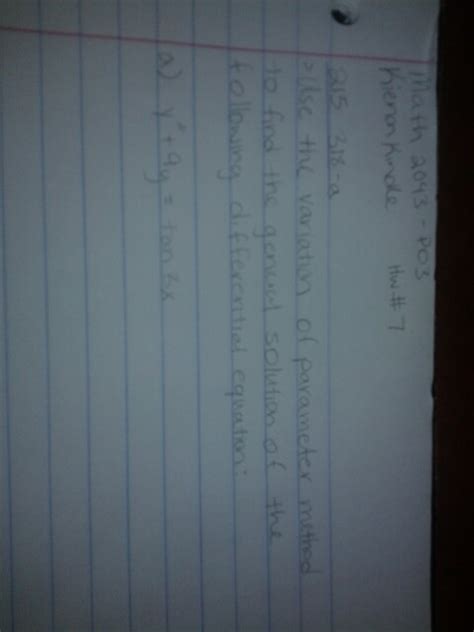 Math 2043 - P03
Kieron Kindle HW# 7
315 318-a
> Use the variation of parameter method
to find the general solution of the
following differential equation:
a) y" + 9y = tan 3x